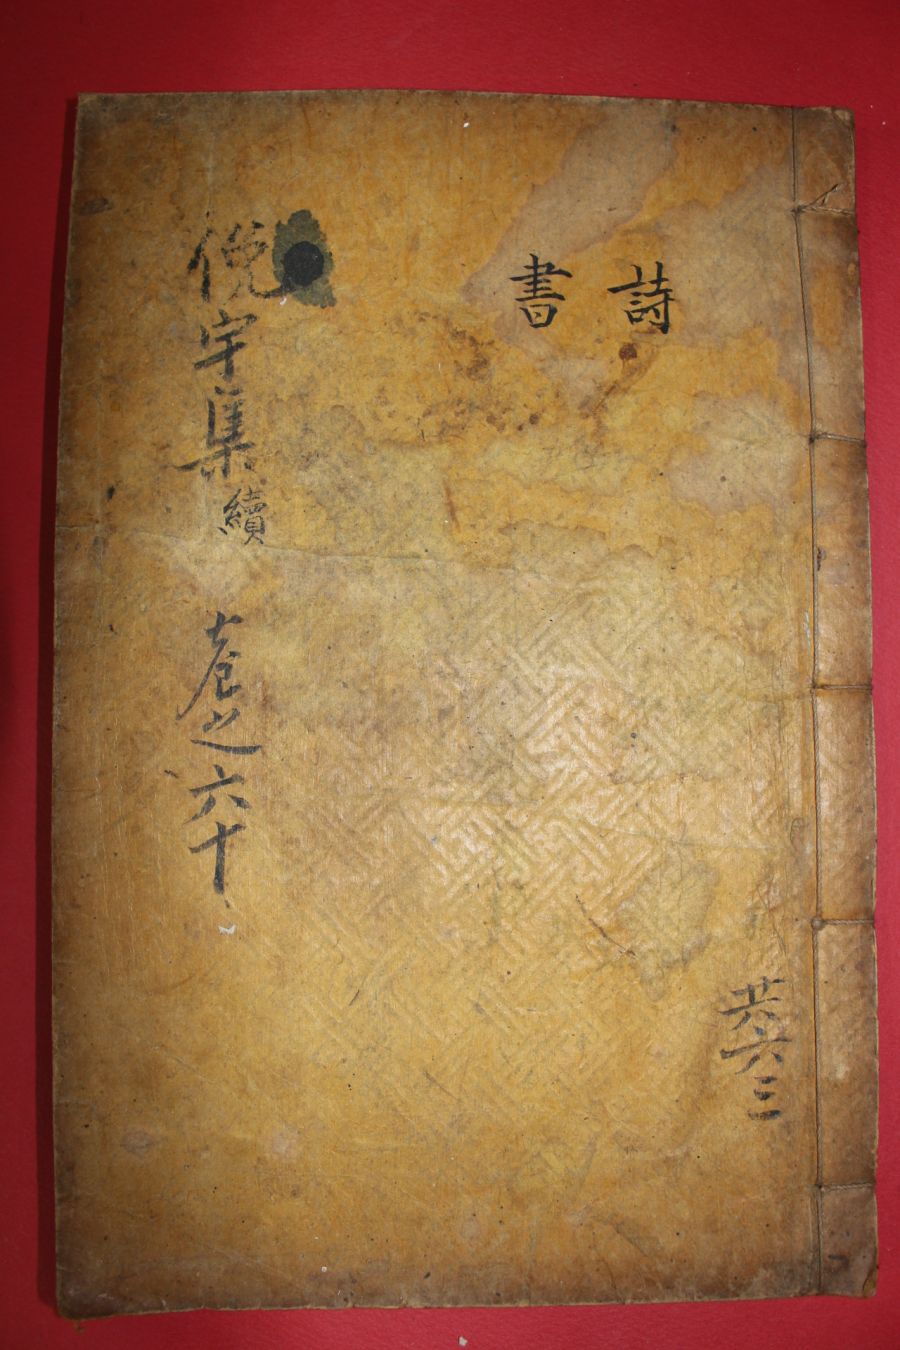 共六三
詩
書
俛宇集續 卷之六十